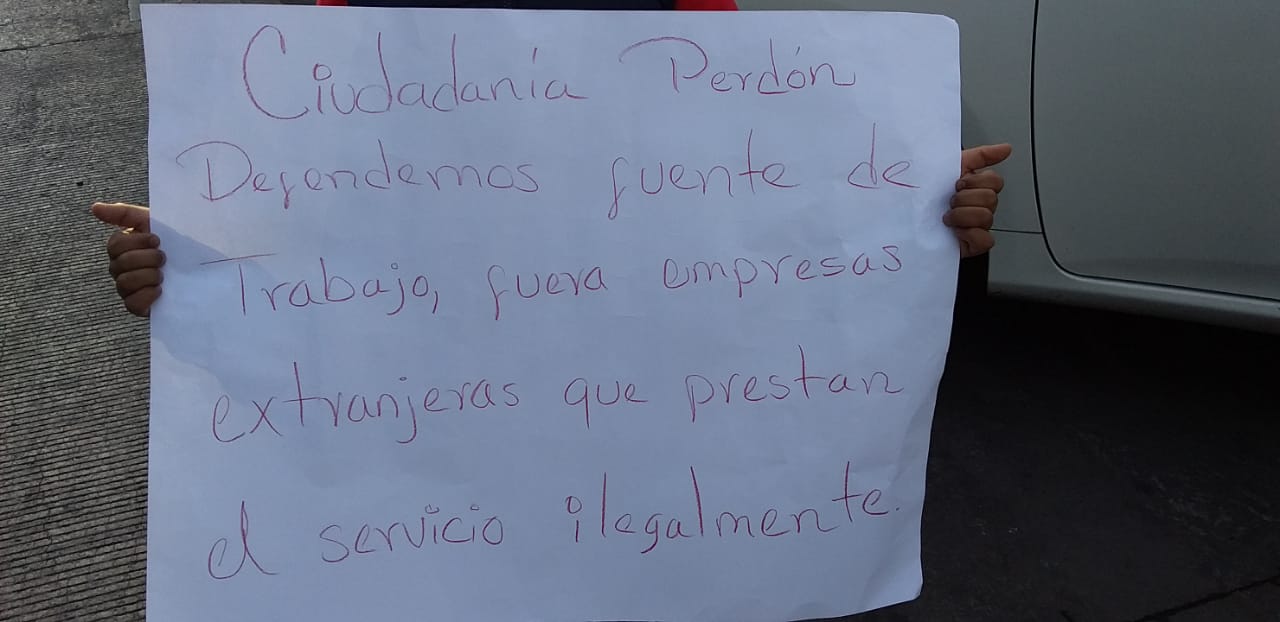 Ciudadanía Perdón
Defendemos fuente de
Trabajo, fuera empresas
extranjeras que prestan
el servicio ilegalmente.